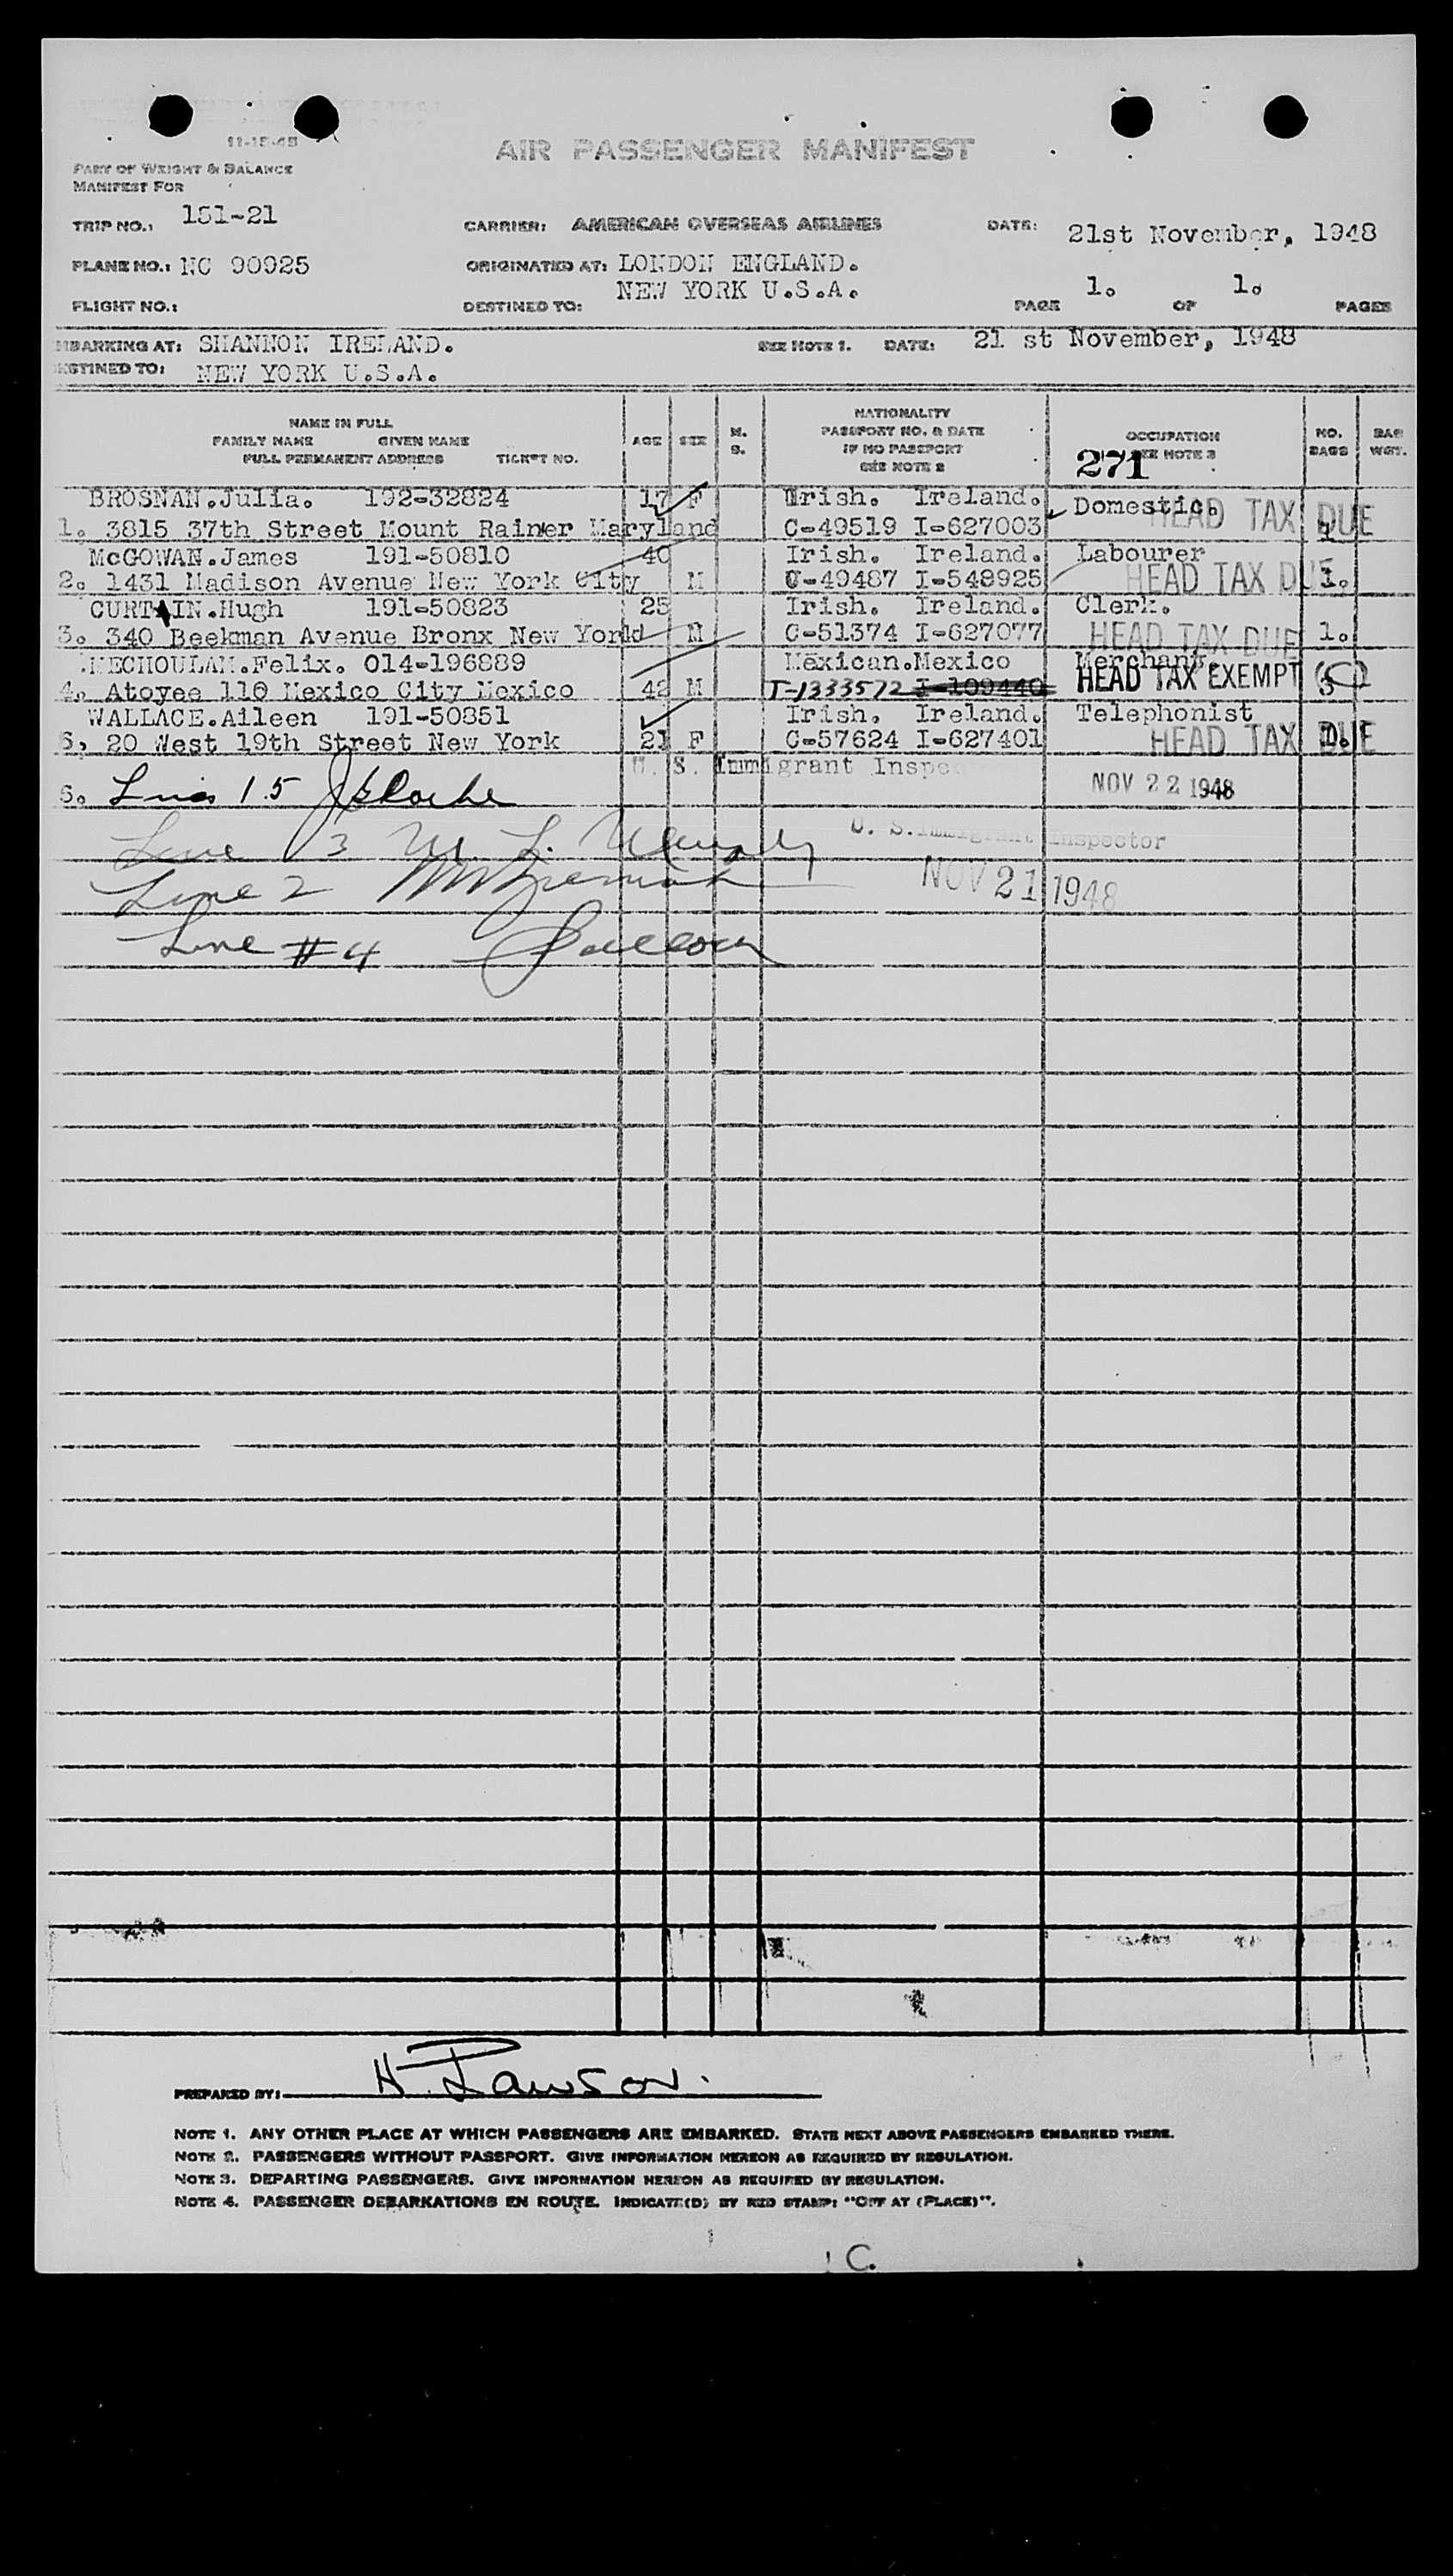 11-15-48
AIR PASSENGER MANIFEST
PART OF WEIGHT & BALANCE
MANIFEST FOR
TRIP NO.: 151-21
CARRIER: AMERICAN OVERSEAS AIRLINES
DATE: 21st November, 1948
PLANE NO.: NC 90925
ORIGINATED AT: LONDON ENGLAND.
FLIGHT NO.:
DESTINED TO: NEW YORK U.S.A.
PAGE 1. OF 1. PAGES
MBARKING AT: SHANNON IRELAND.
SEE NOTE 1. DATE: 21 st November, 1948
ESTINED TO: NEW YORK U.S.A.
NAME IN FULL
FAMILY NAME GIVEN NAME
FULL PERMANENT ADDRESS TICKET NO.
AGE
SEX
M.
S.
NATIONALITY
PASSPORT NO. & DATE
IF NO PASSPORT
SEE NOTE 2
OCCUPATION
SEE NOTE 3
271
NO.
BAGS
BAG
WGT.
BROSNAN.Julia. 192-32824 17 F Irish. Ireland. Domestic.
1. 3815 37th Street Mount Rainer Maryland C-49519 I-627003 HEAD TAX DUE
McGOWAN.James 191-50810 40 Irish. Ireland. Labourer
2. 1431 Madison Avenue New York City M C-49487 I-548925 HEAD TAX DUE 1.
CURTAIN.Hugh 191-50823 25 Irish. Ireland. Clerk.
3. 340 Beekman Avenue Bronx New York M C-51374 I-627077 HEAD TAX DUE 1.
MECHOULAM.Felix. 014-196889 Mexican.Mexico Merchant.
4. Atoyee 110 Mexico City Mexico 42 M T-1333572 I-109440 HEAD TAX EXEMPT
WALLACE.Aileen 191-50851 Irish. Ireland. Telephonist
5. 20 West 19th Street New York 21 F C-57624 I-627401 HEAD TAX DUE 1.
U. S. Immigrant Inspec
6. Lines 1.5
NOV 22 1948
Line 3 M. L.
U. S. Immigrant Inspector
Line 2
NOV 21 1948
Line #4
PREPARED BY: H. Lawson.
NOTE 1. ANY OTHER PLACE AT WHICH PASSENGERS ARE EMBARKED. STATE NEXT ABOVE PASSENGERS EMBARKED THERE.
NOTE 2. PASSENGERS WITHOUT PASSPORT. GIVE INFORMATION HEREON AS REQUIRED BY REGULATION.
NOTE 3. DEPARTING PASSENGERS. GIVE INFORMATION HEREON AS REQUIRED BY REGULATION.
NOTE 4. PASSENGER DEBARKATIONS EN ROUTE. INDICATE(D) BY RED STAMP: "OFF AT (PLACE)".
C.